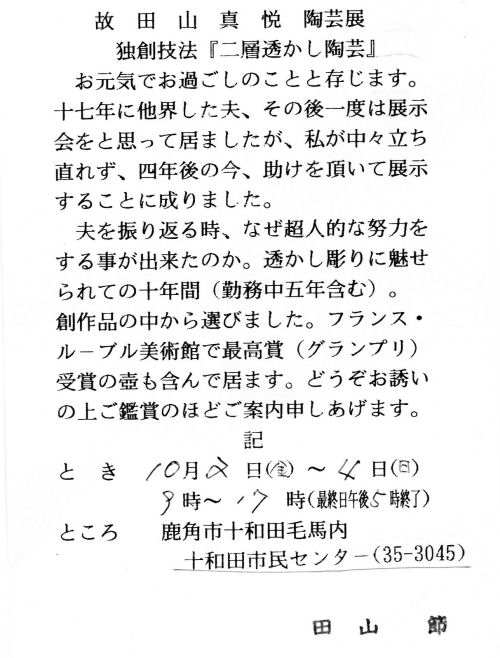 故田山真悦 陶芸展
独創技法『二層透かし陶芸』
お元気でお過ごしのことと存じます。
十七年に他界した夫、その後一度は展示
会をと思って居ましたが、私が中々立ち
直れず、四年後の今、助けを頂いて展示
することに成りました。
夫を振り返る時、なぜ超人的な努力を
する事が出来たのか。透かし彫りに魅せ
られての十年間（勤務中五年含む）。
創作品の中から選びました。フランス・
ルーブル美術館で最高賞（グランプリ）
受賞の壺も含んで居ます。どうぞお誘い
の上ご鑑賞のほどご案内申しあげます。
記
とき 10月2日(金)～4日(日)
9時～17時(最終日午後5時終了)
ところ 鹿角市十和田毛馬内
十和田市民センター(35-3045)
田山 節